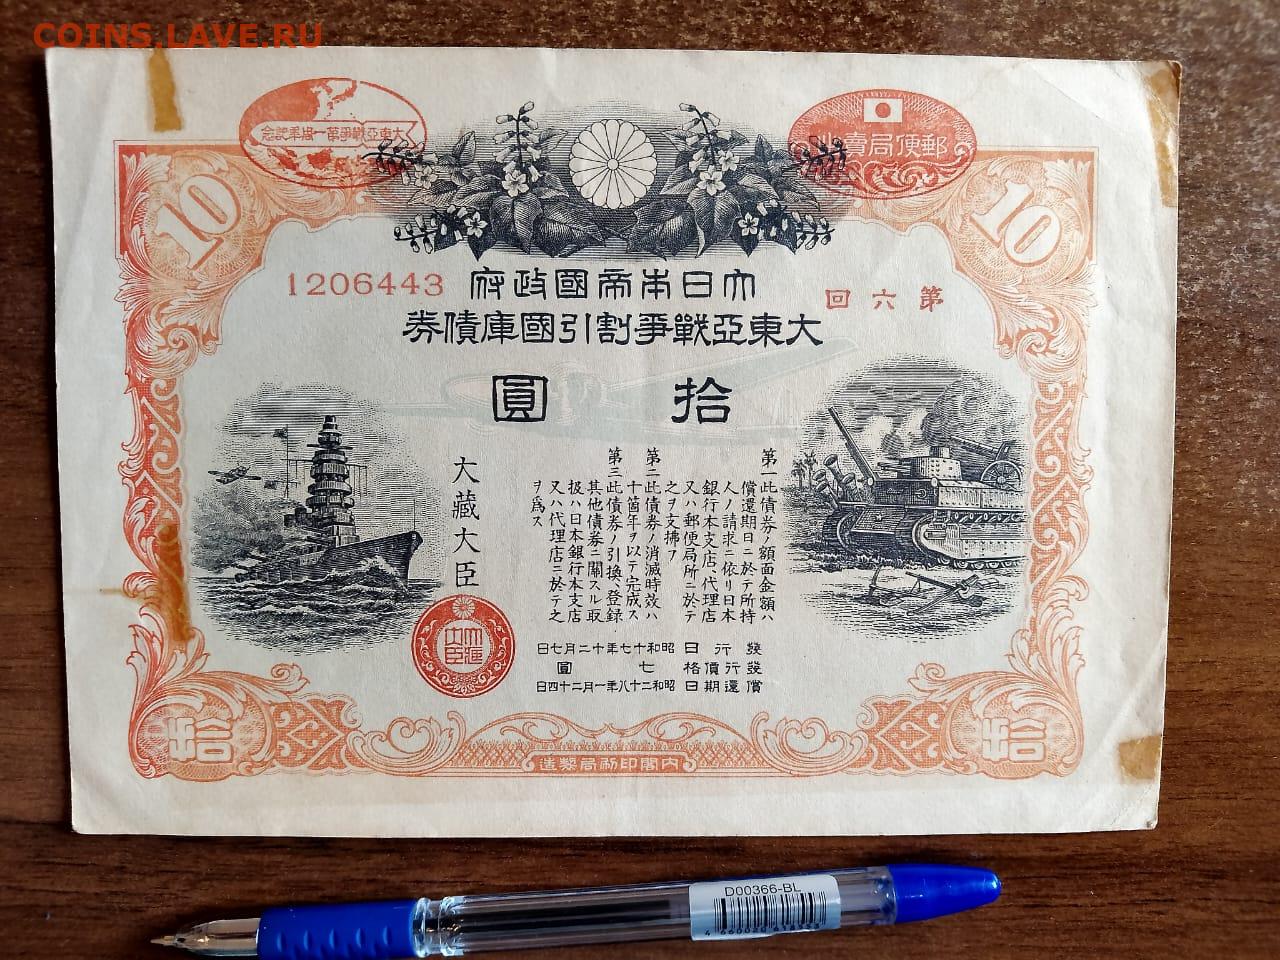 COINS.LAVE.RU
大東亞戰爭第一周年記念
郵便局賣出
10
10
1206443
大日本帝國政府
第六回
大東亞戰爭割引國庫債券
拾圓
第一此債券ノ額面金額ハ
償還期日ニ於テ所持
人ノ請求ニ依リ日本
銀行本支店、代理店
又ハ郵便局所ニ於テ
之ヲ支拂フ
第二此債券ノ消滅時效ハ
十箇年ヲ以テ完成ス
第三此債券ノ引換、登錄
其他債券ニ關スル取
扱ハ日本銀行本支店
又ハ代理店ニ於テ之
ヲ爲ス
大藏大臣
大藏大臣
發行日 昭和十七年十二月七日
發行價格 七圓
償還期日 昭和二十八年一月二十四日
拾
拾
內閣印刷局製造
D00366-BL